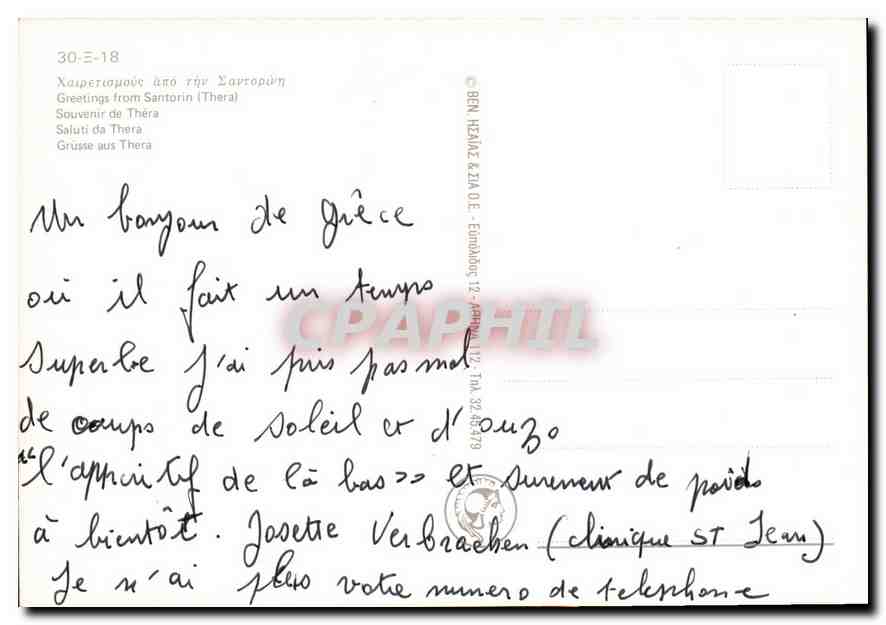 30-Ξ-18
Χαιρετισμούς ἀπό τήν Σαντορίνη
Greetings from Santorin (Thera)
Souvenir de Théra
Saluti da Thera
Grüsse aus Thera
© ΒΕΝ. ΗΣΑΪΑΣ & ΣΙΑ Ο.Ε. - Εὐπόλιδος 12 - ΑΘΗΝΑ 112 - Τηλ. 32.45.479
CPAPHIL
Un bonjour de grêce
où il fait un temps
superbe j'ai pris pas mal
de coups de soleil et d'ouzo
"l'apperitif de là bas» et surement de poids
à bientôt. Josette Verbraeken (clinique ST Jean)
Je n'ai plus votre numero de telephone